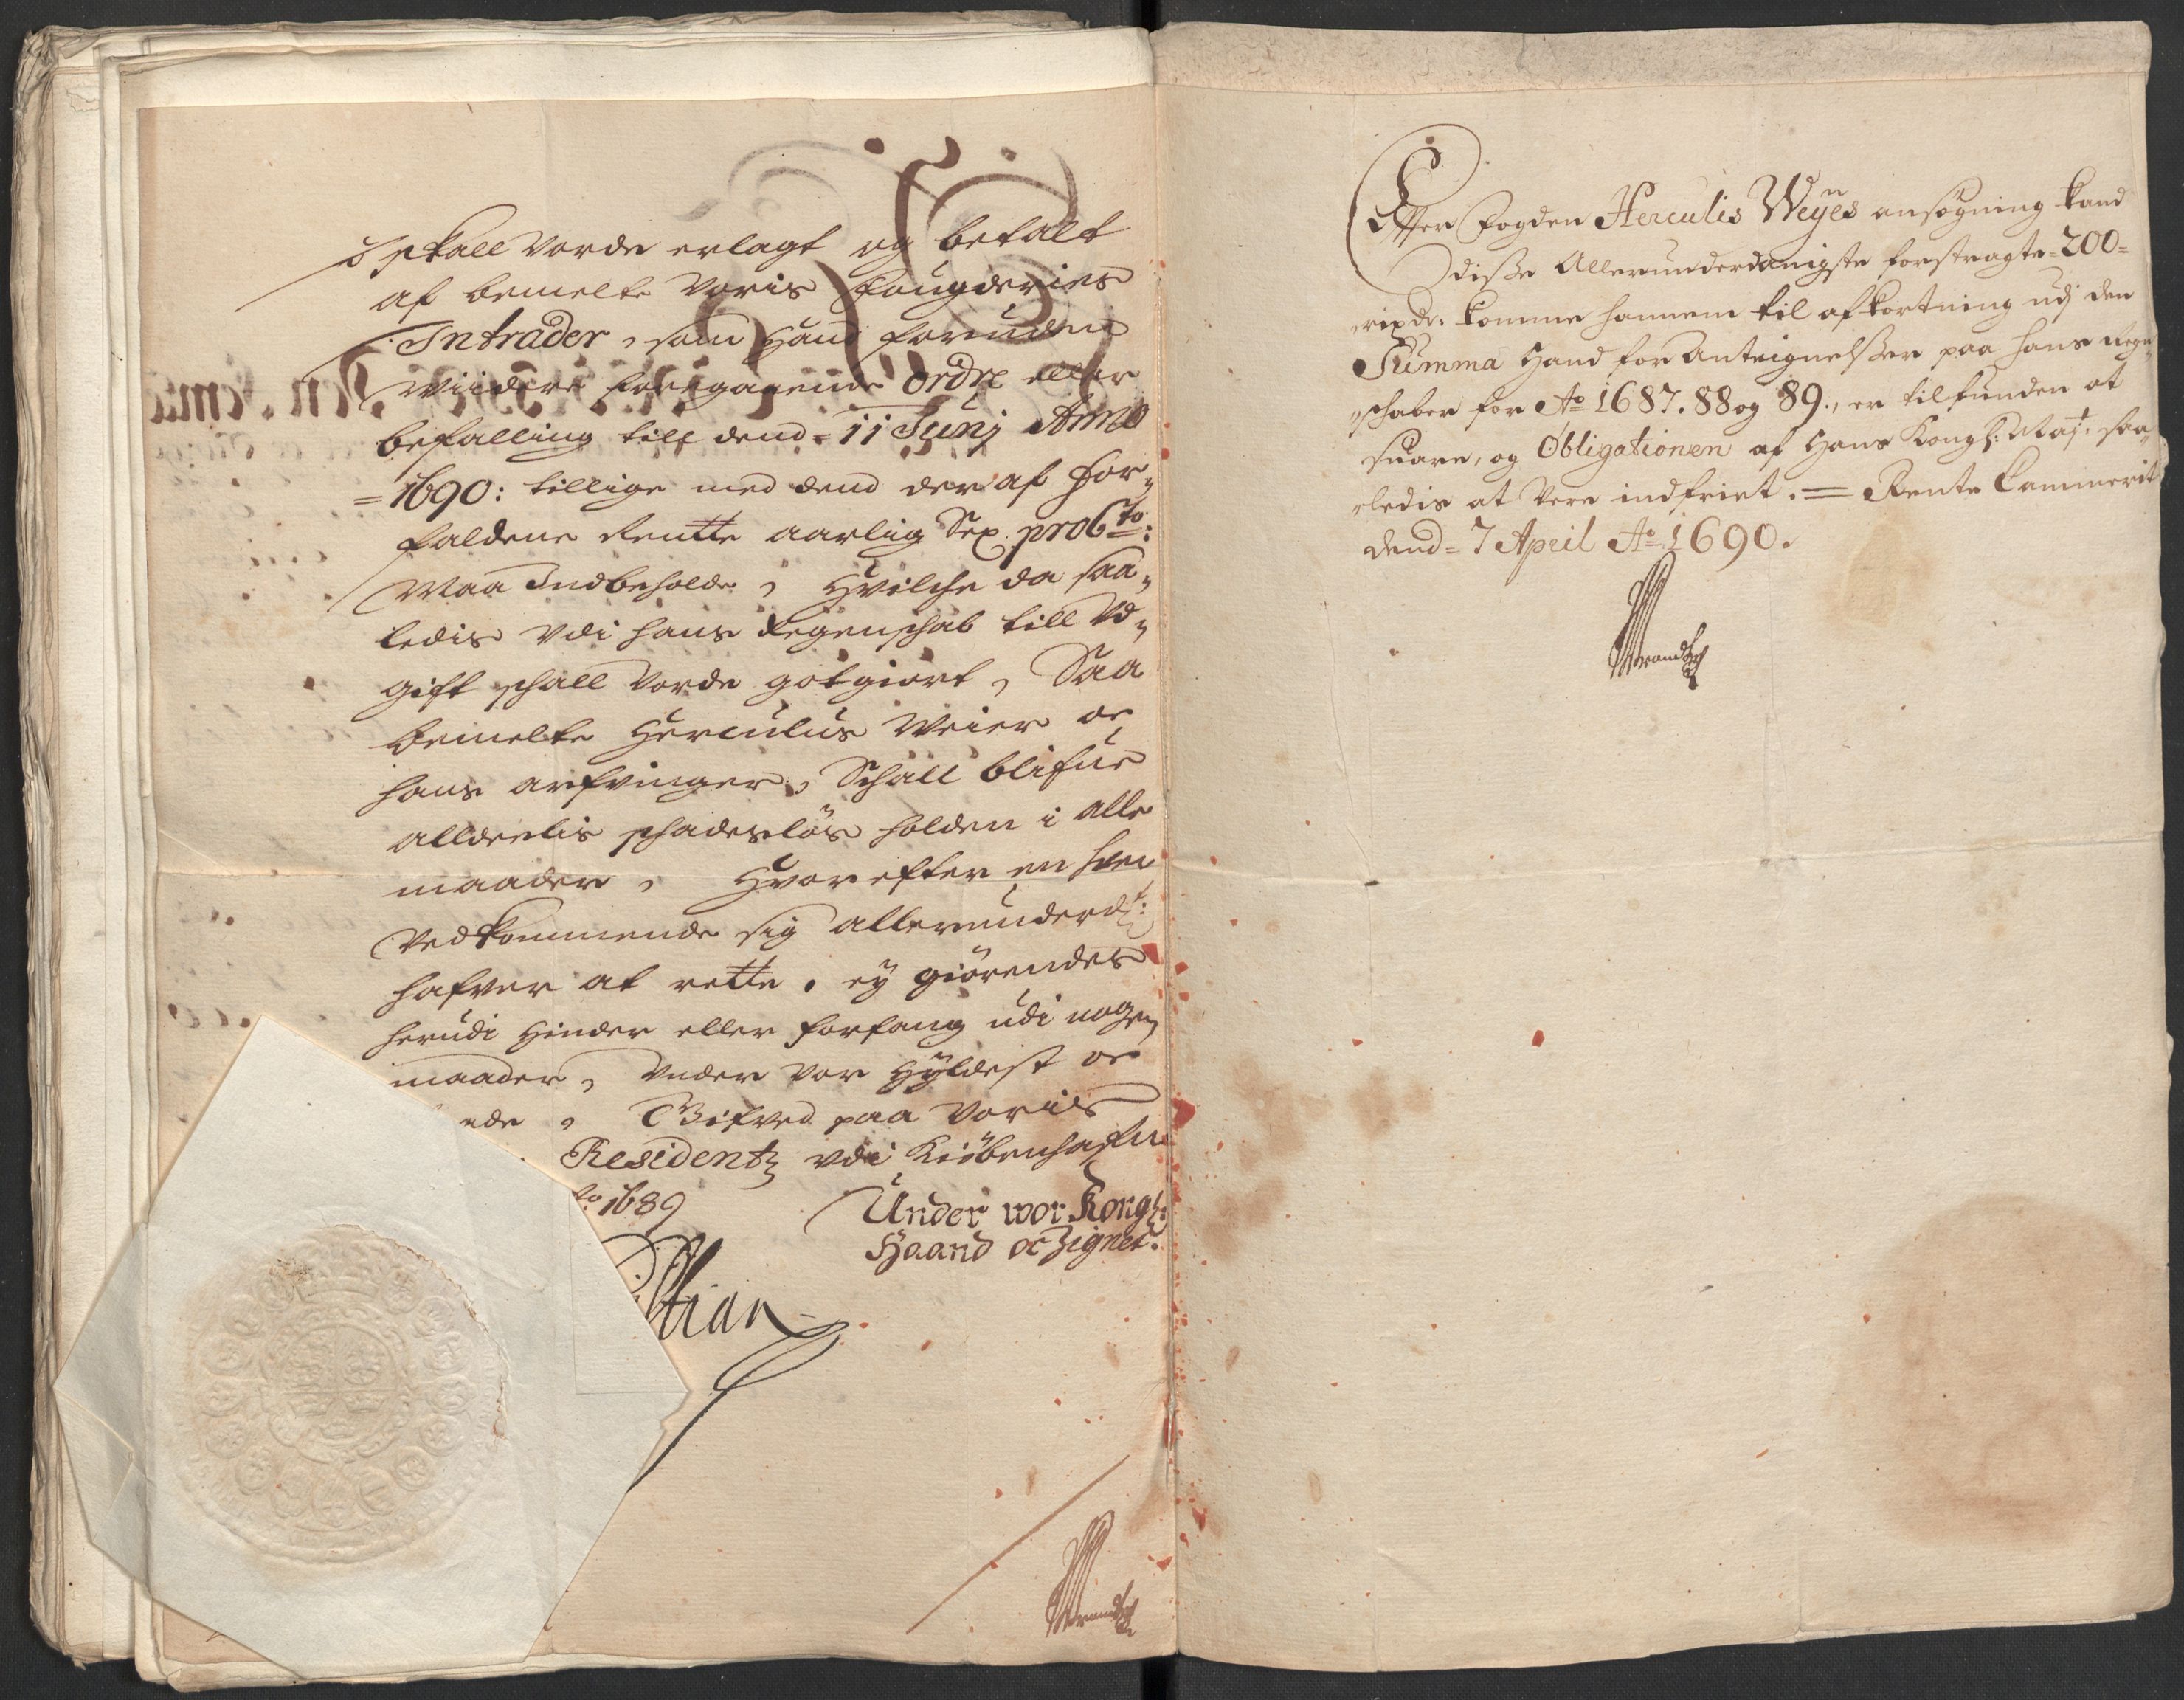 skall vorde erlagt og betalt
af bemelte Voris Fougderies
Intrader, som hand foruden
Wiidere foregaaende Ordre eller
befalling till dend 11 Junj Anno
1690: tillige med dend der af for„
faldene Rentte aarlig Sex pro Cto:
Maa Indbeholde, Hvilche da saa„
ledis Vdi hans Regenschab till Vd„
gift schall Vorde got giort, Saa
bemelte Herculus Weier oc
hans arfvinger, Schall blifue
alldeelis schadesløs holden i alle
maader, Hvorefter en hver
Vedkommende sig allerunderdt:
hafver at rette. ey giørendes
herudi Hinder eller forfang udi nogen
maader, Vnder Vor Hyldest oc
ede, Gifved paa Voriis
Residentz vdi Kiöbenhafn
1689 Under wor Kongl:
Haand oc Zignet.
stian
Efter Fogden Herculis Weyes ansøgning kand
disse Allerunderdanigste forstragte 200=
rixdr. komme hannem til afkortning udj den
Summa Hand for Anteignelsser paa hans Regn„
„schaber for Ao 1687. 88 og 89., er tilfunden at
suare, og Obligationen af Hans Kongl: Mayt: saa„
„ledis at være indfriet. = Rente Cammerit
dend= 7 April Ao 1690.